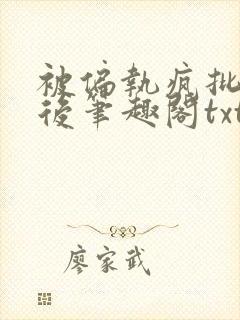 被偏執瘋批
後筆趣閣txt
廖家武